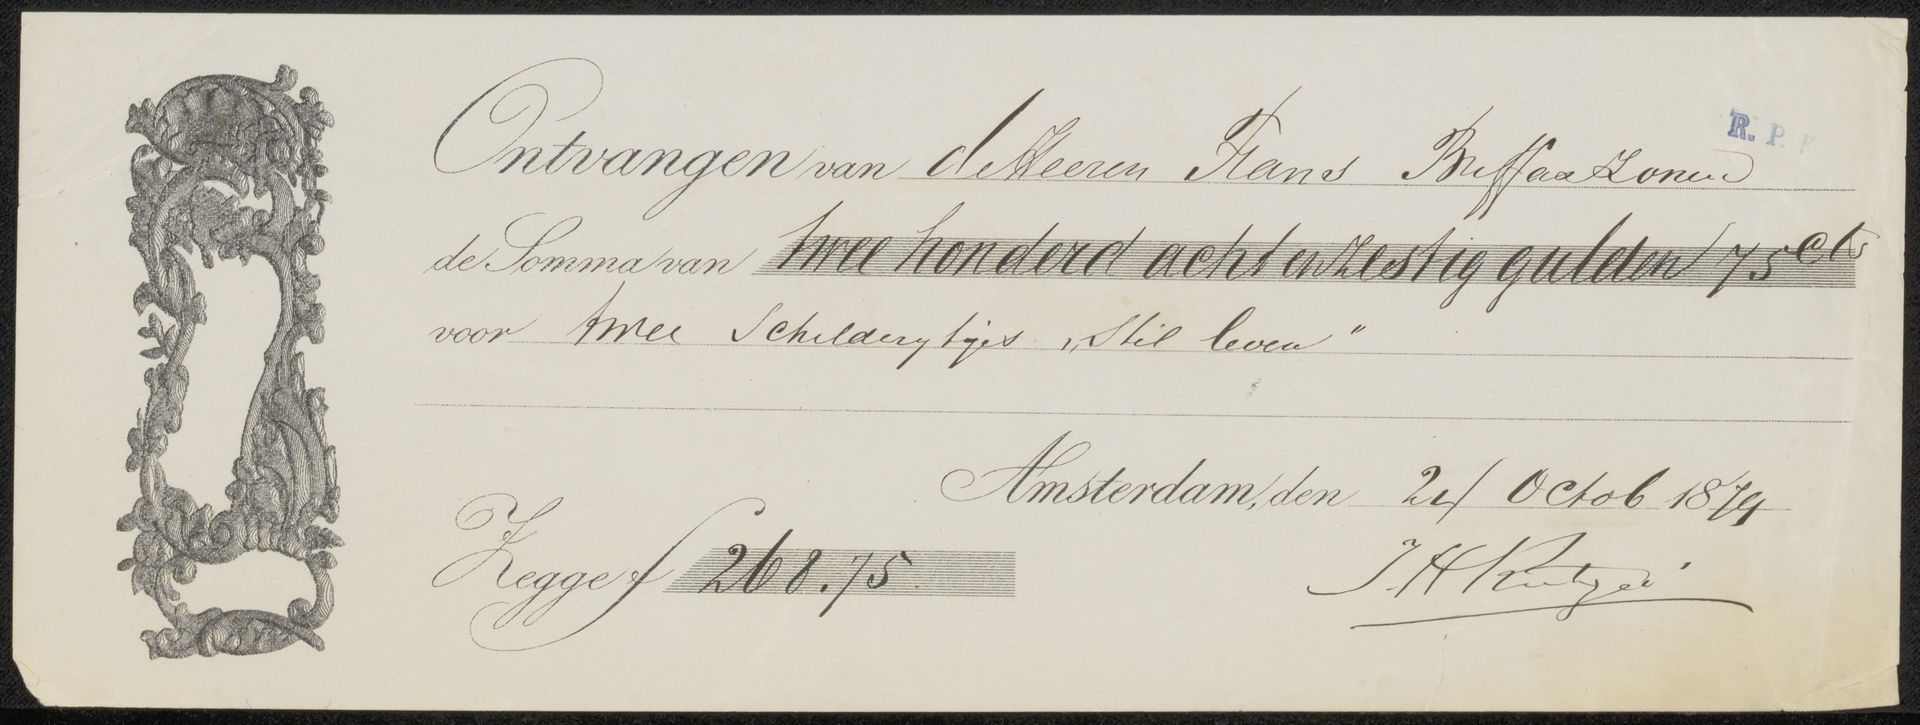 R. P. K
Ontvangen van de Heeren Frans Buffa & Zonen
de Somma van twee honderd acht en zestig gulden 75 cts
voor twee Schilderytjes „Stil leven"
Amsterdam, den 24 Octob 1874
Zegge f 268.75
J H